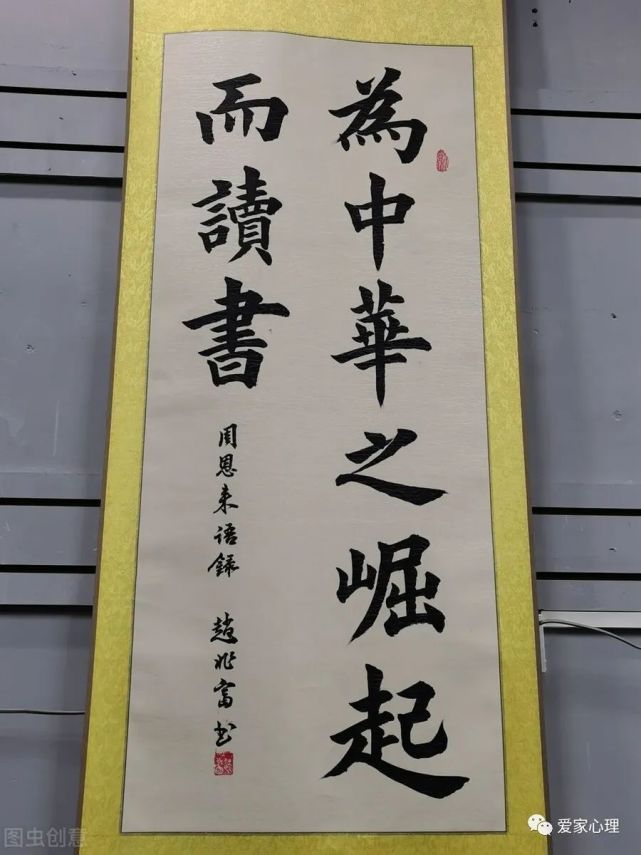 為中華之崛起
而讀書
周恩来语錄 趙兆富书
图虫创意
爱家心理